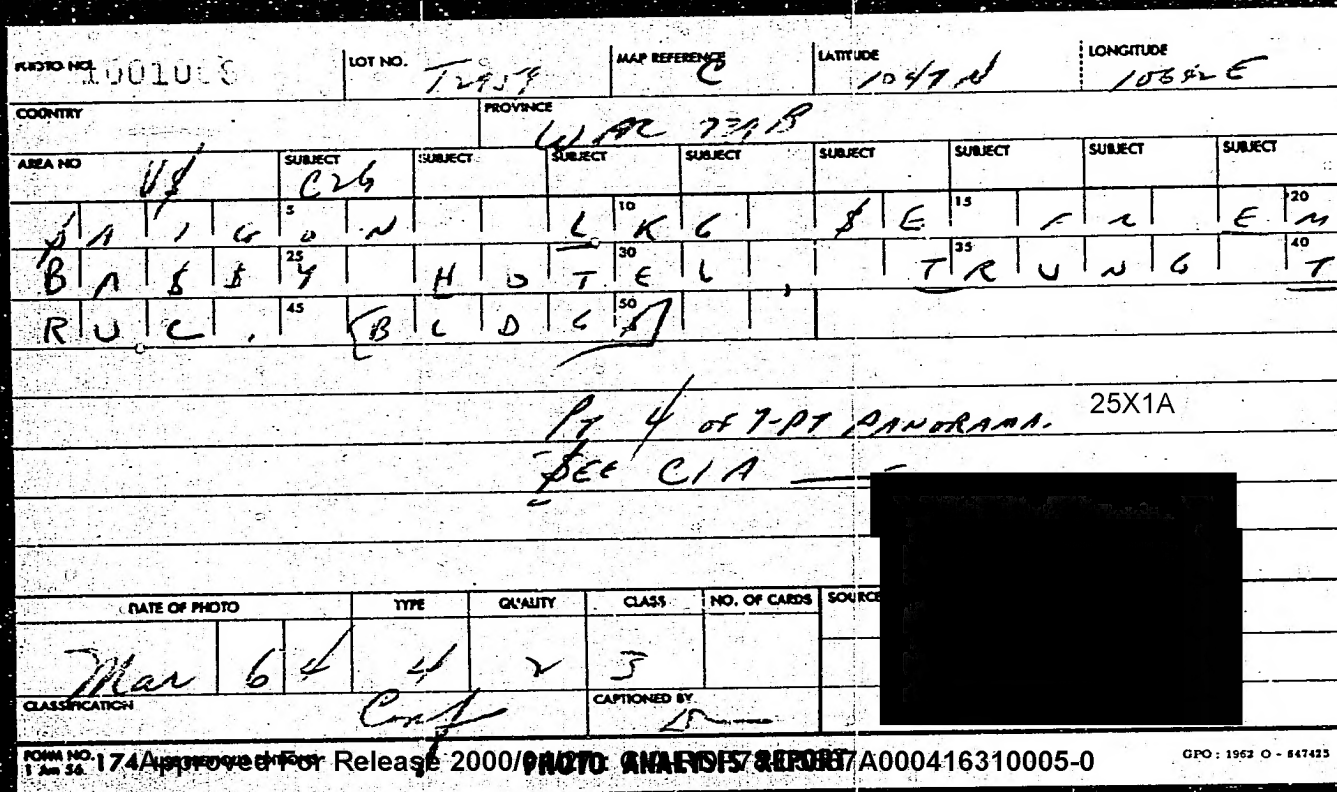 PHOTO NO. LOT NO. T2959 MAP REFERENCE C LATITUDE 1047N LONGITUDE 10642E
COUNTRY PROVINCE WAC 739B
AREA NO V$ SUBJECT C26 SUBJECT SUBJECT SUBJECT SUBJECT SUBJECT SUBJECT SUBJECT
$AIGON LKG $E FR EM
BA$$Y HOTEL, TRUNG T
RUC. [BLDG$]
PT 4 OF 7-PT PANORAMA. 25X1A
$EE CIA
DATE OF PHOTO TYPE QUALITY CLASS NO. OF CARDS SOURCE
Mar 64 4 2 3
CLASSIFICATION Conf CAPTIONED BY
FORM NO. 174 Approved For Release 2000/ PHOTO ANALYSIS REPORT A000416310005-0 GPO : 1962 O - 647423
1 Jan 56.